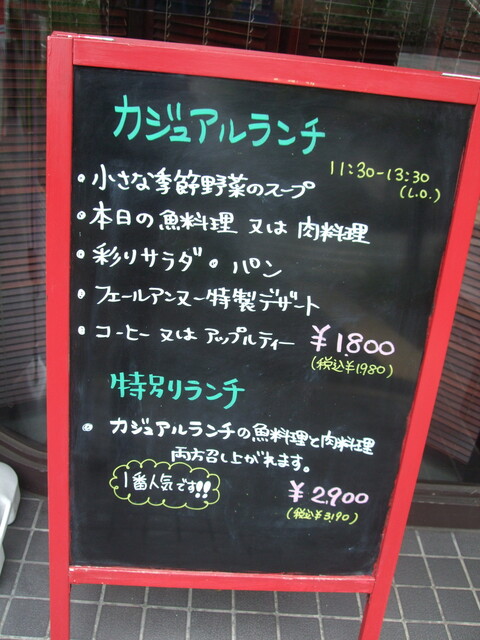 カジュアルランチ
11:30-13:30
(L.O.)
・小さな季節野菜のスープ
・本日の魚料理 又は 肉料理
・彩りサラダ・パン
・フェールアンヌー特製デザート
・コーヒー又はアップルティー ¥1.800
(税込¥1980)
特別ランチ
・カジュアルランチの魚料理と肉料理
両方召し上がれます。
1番人気です!! ¥2.900
(税込¥3190)